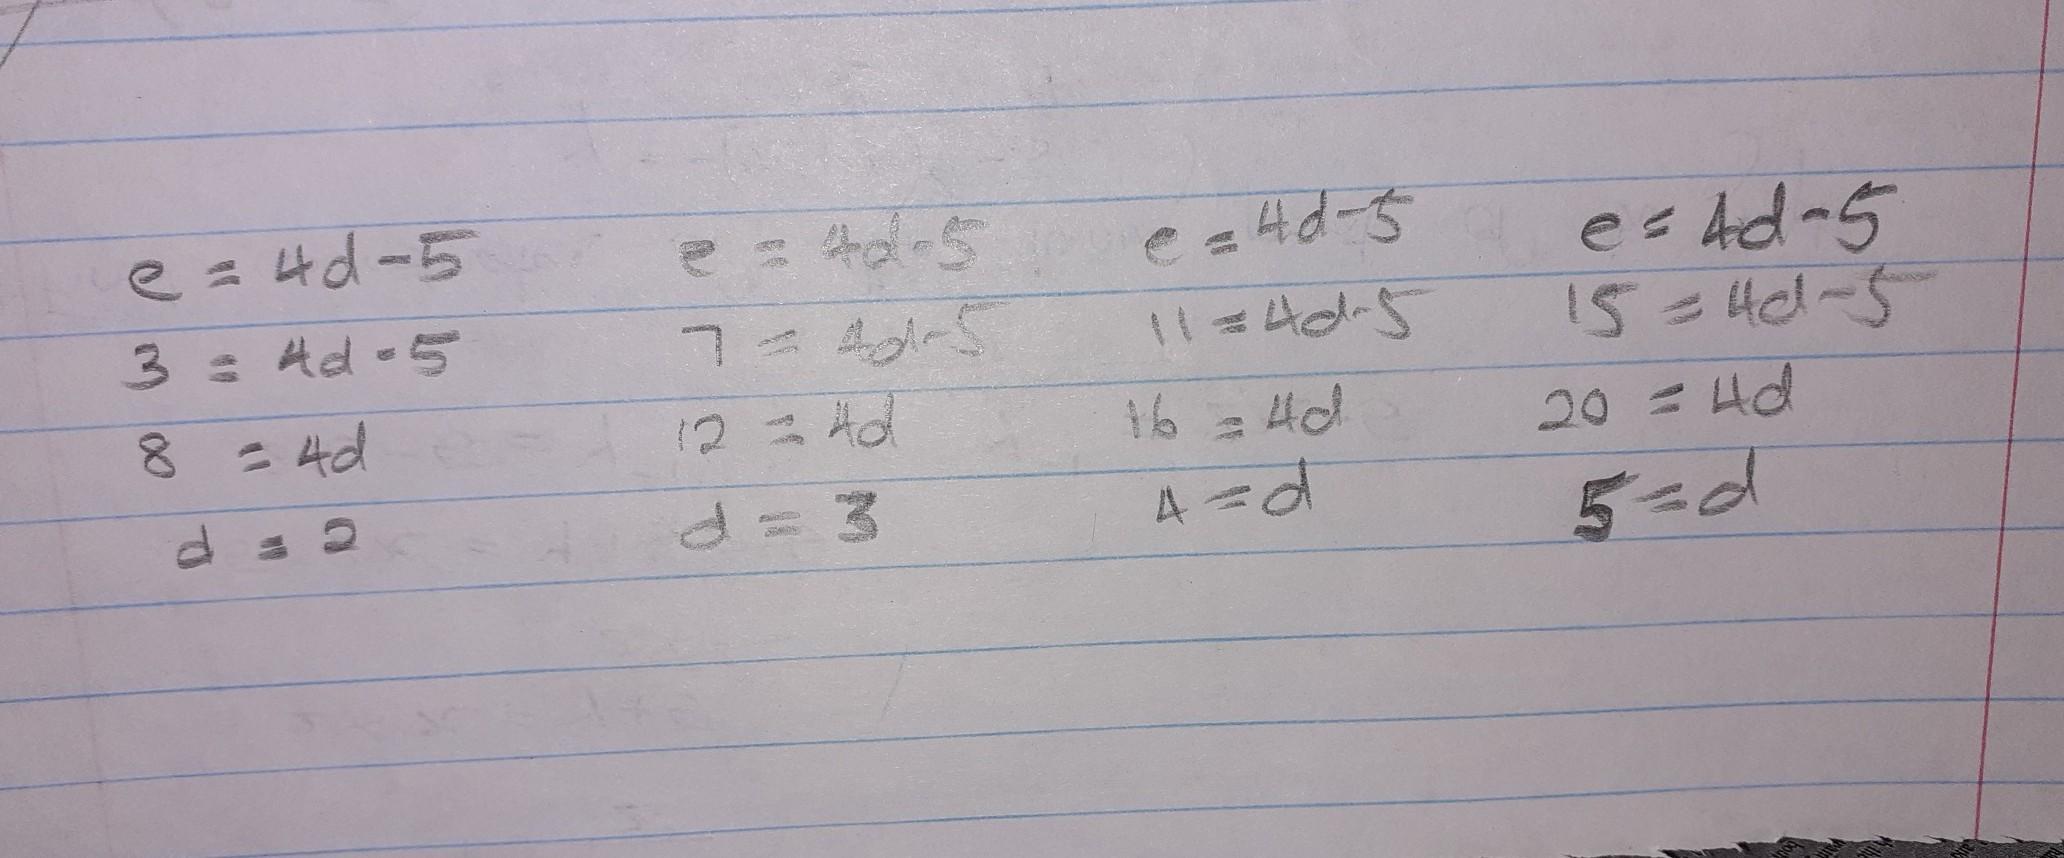 e = 4d-5
3 = 4d-5
8 = 4d
d = 2
e = 4d-5
7 = 4d-5
12 = 4d
d = 3
e = 4d-5
11 = 4d-5
16 = 4d
4 = d
e = 4d-5
15 = 4d-5
20 = 4d
5 = d